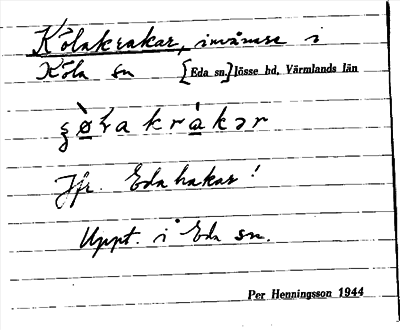 Kölakrakar, invånare i
Köla sn [Eda sn.] Jösse hd, Värmlands län
krakər
Jfr. Edahakar!
Uppt. i Eda sn.
Per Henningsson 1944